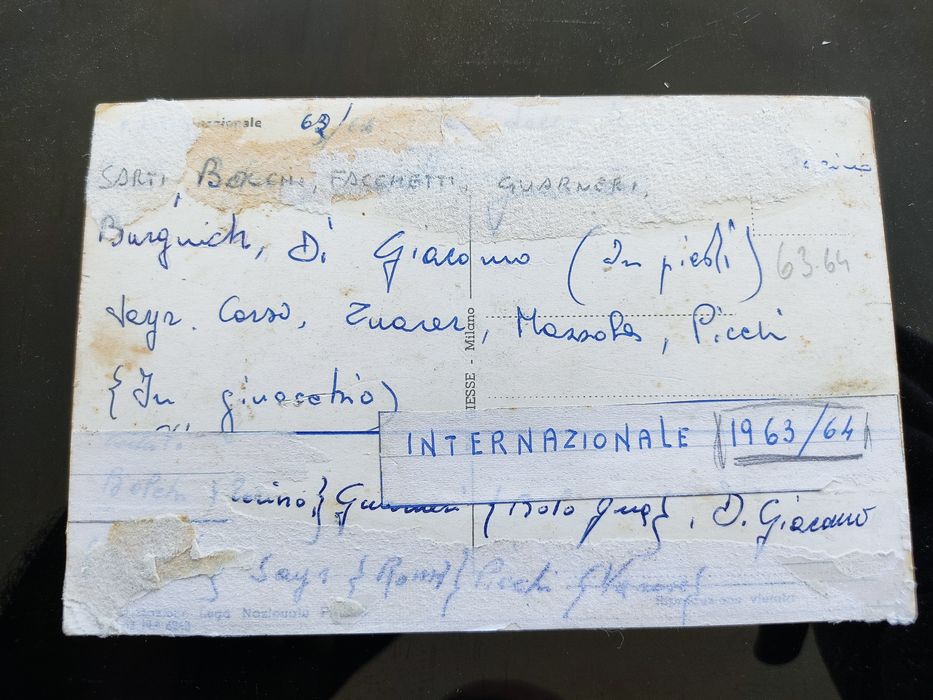 nazionale 63/64
SARTI, BOLCHI, FACCHETTI, GUARNERI,
Burgnich, Di Giacomo (In piedi) 63-64
Jayr. Corso, Zuarez, Mazzola, Picchi
{In ginocchio)
IESSE - Milano
INTERNAZIONALE (1963/64)
Bolchi {Torino,} Guarneri {Bologna}, D. Giacomo
} Jayr {Roma} Picchi {Varese}
Riproduzione vietata
Lega Nazionale